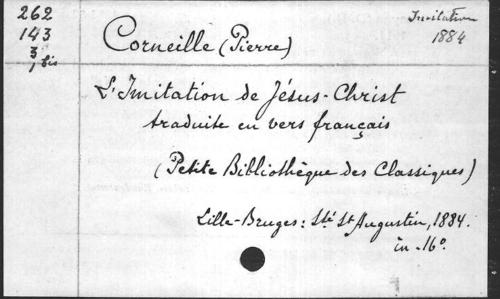 262
143
3
1 bis
Imitation
1884
Corneille (Pierre)
L'Imitation de Jésus-Christ
traduite en vers français
(Petite Bibliothèque des Classiques)
Lille-Bruges: Sté St Augustin, 1884.
in-16°.